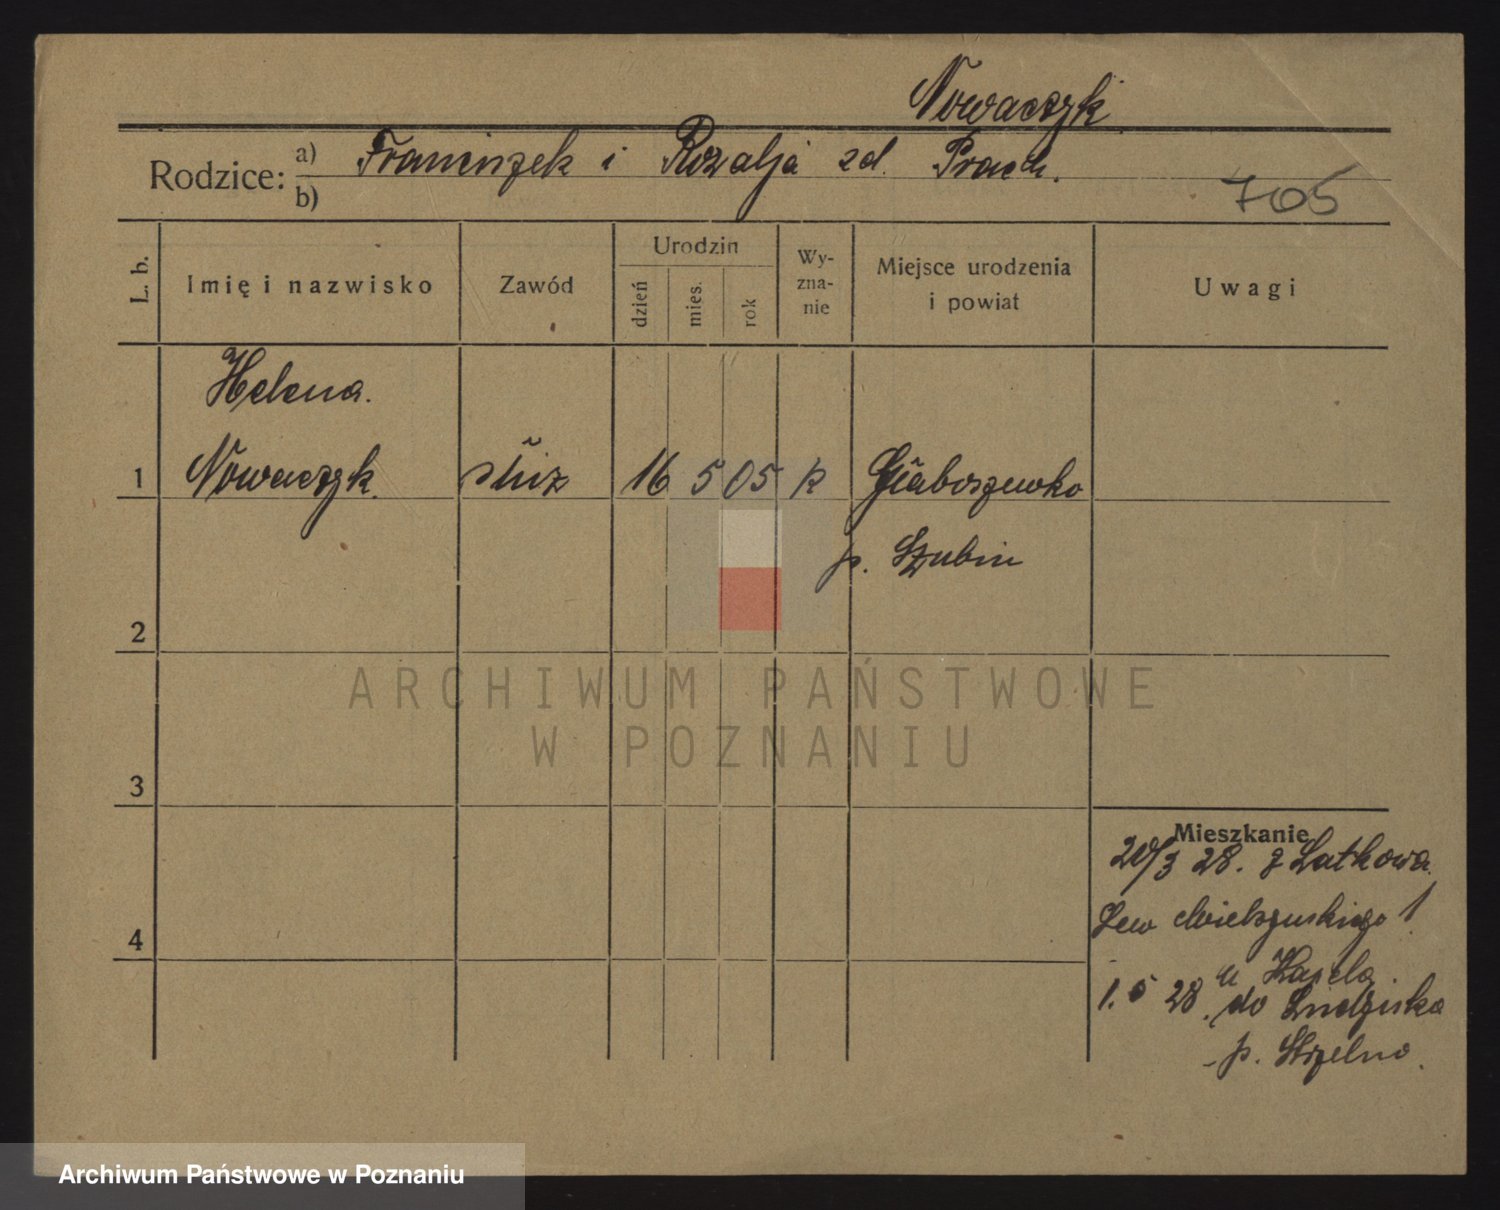 Nowaczyk
Rodzice: a) Franciszek i Rozalja zd. Prach.
b)
705
L. b. Imię i nazwisko Zawód Urodzin dzień mies. rok Wy-zna-nie Miejsce urodzenia i powiat Uwagi
Helena.
1 Nowaczyk. służ 16 5 05 k
p. Szubin
2
ARCHIWUM PAŃSTWOWE
W POZNANIU
3
Mieszkanie
20/3 28. z Łatkowa.
4
1. 5 28. do
p. Strzelno.
Archiwum Państwowe w Poznaniu